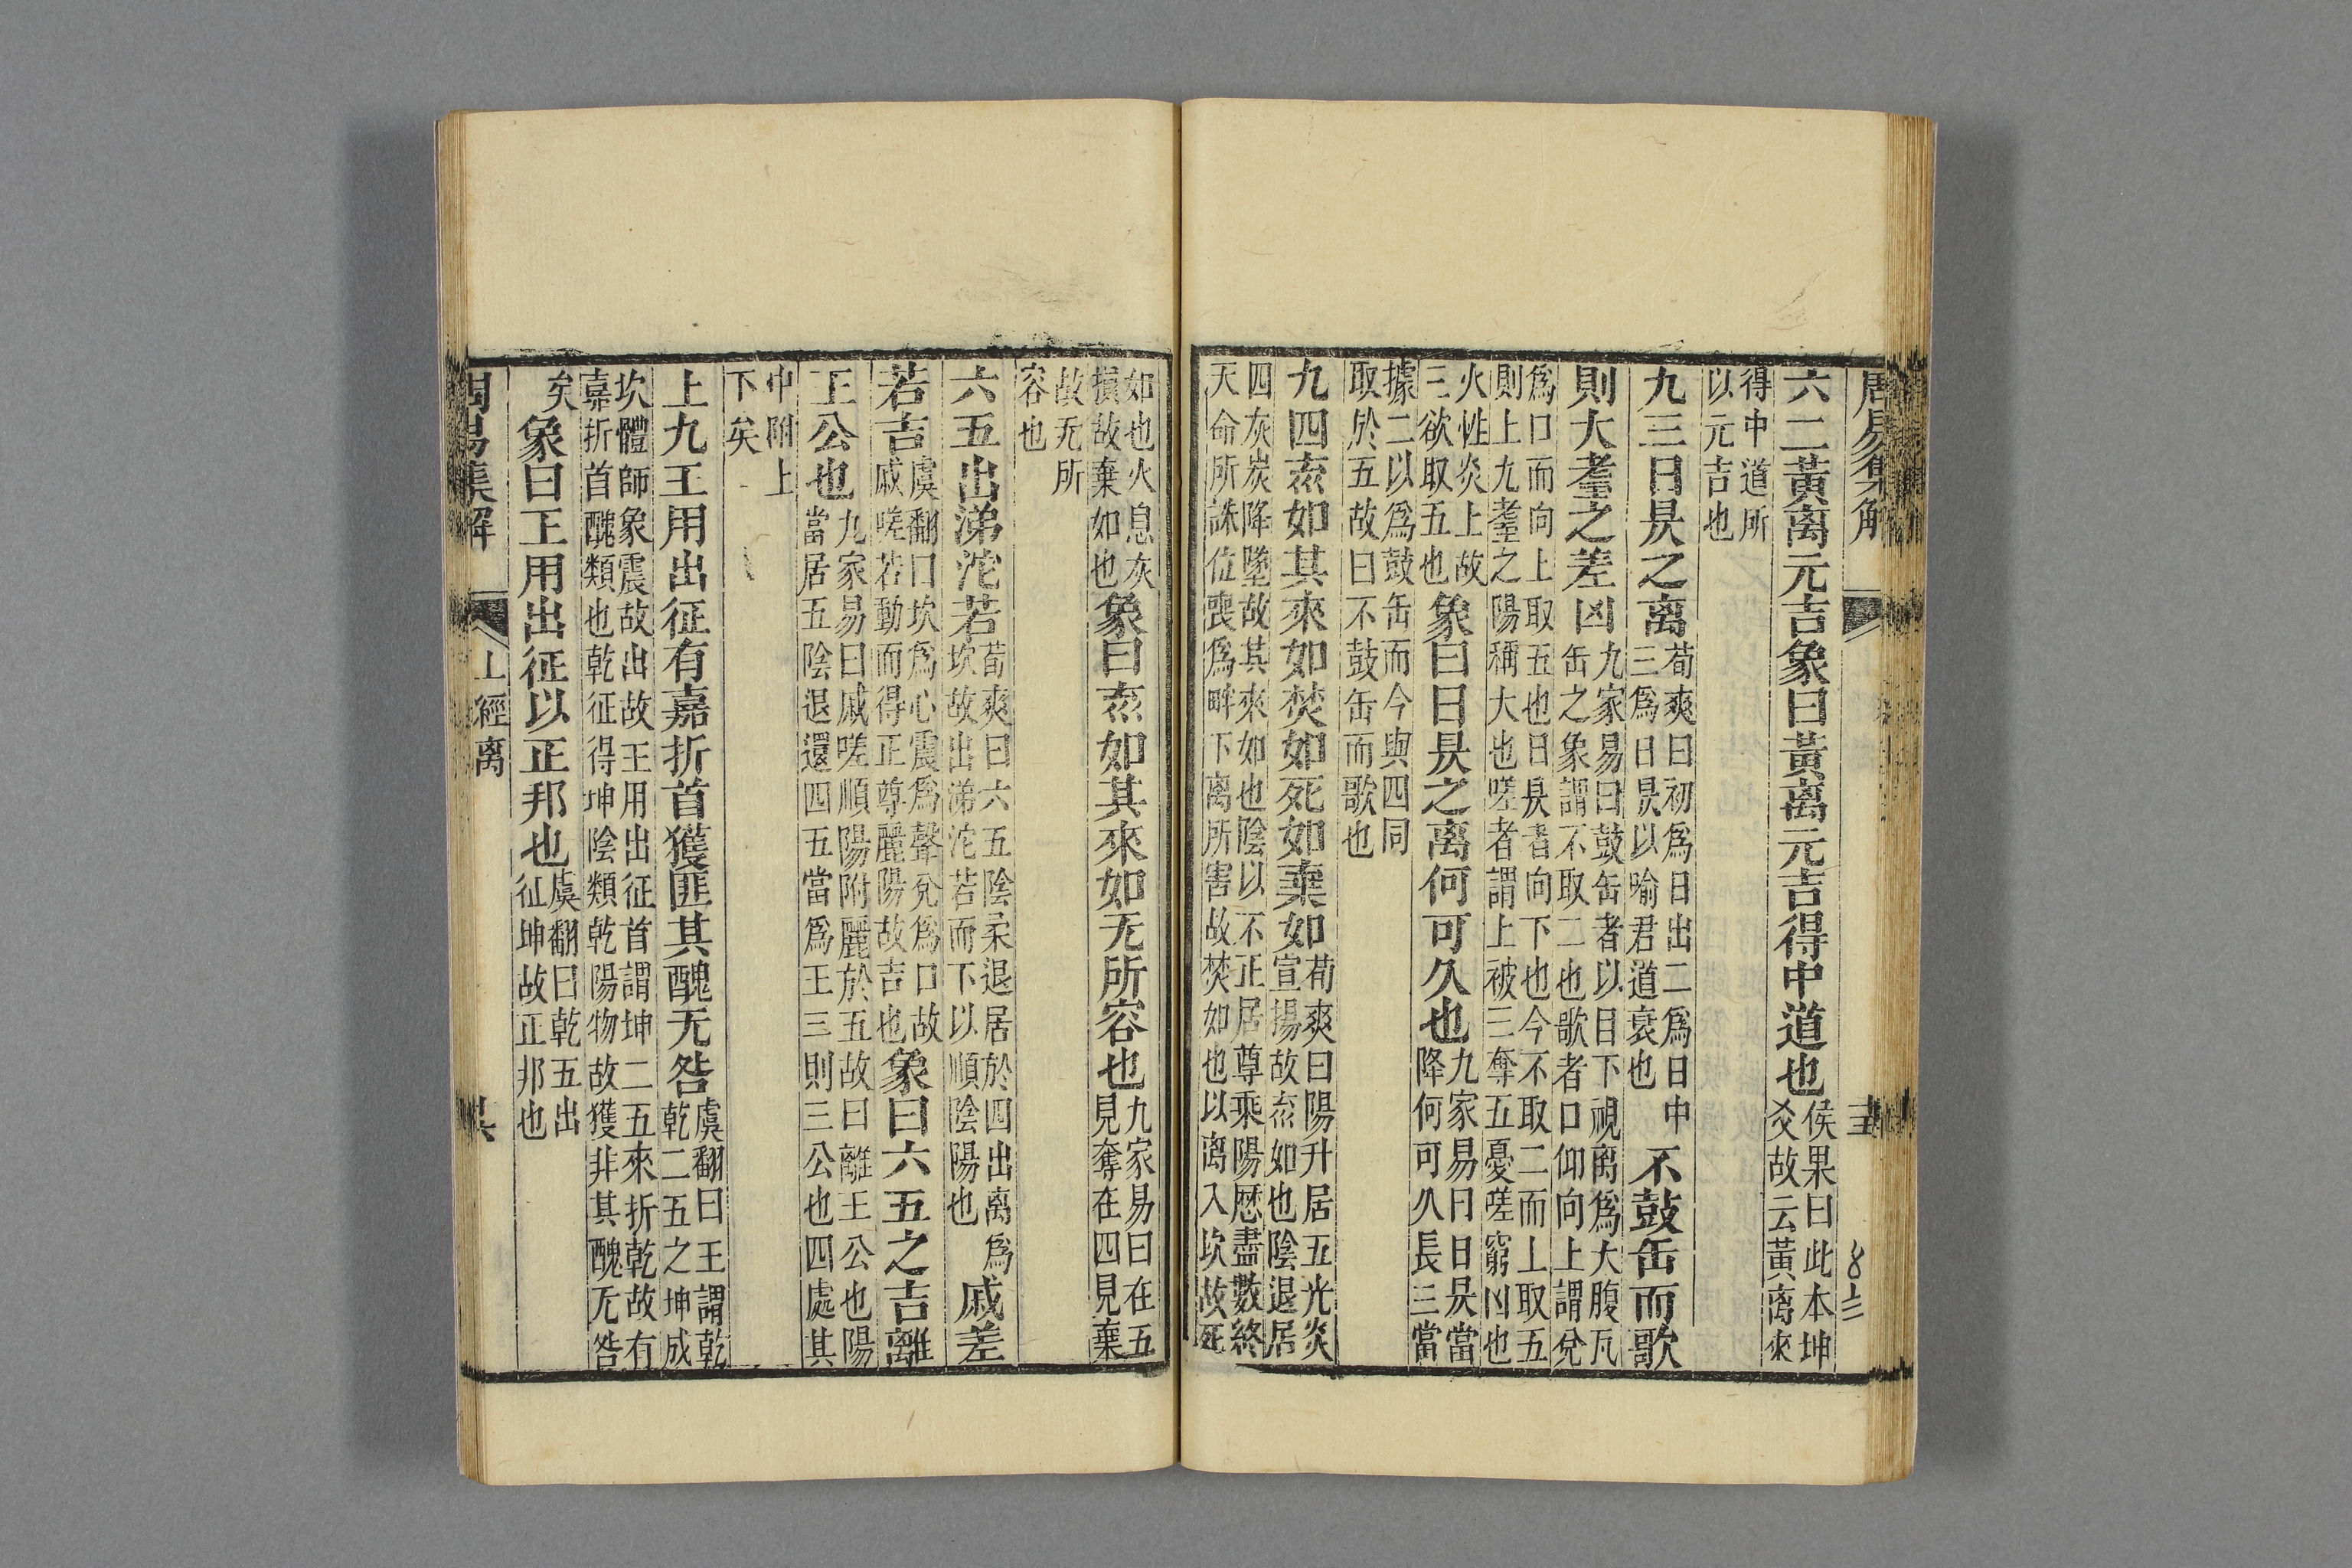 周易集解
六二黃离元吉象曰黃离元吉得中道也侯果曰此本坤
爻故云黃离來
得中道所
以元吉也
九三日昃之离荀爽曰初爲日出二爲日中
三爲日昃以喻君道衰也不鼓缶而歌
則大耋之差凶九家易曰鼓缶者以目下視离爲大腹瓦
缶之象謂不取二也歌者口仰向上謂兌
爲口而向上取五也日昃者向下也今不取二而上取五
則上九耋之陽稱大也嗟者謂上被三奪五憂嗟窮凶也
火性炎上故
三欲取五也象曰日昃之离何可久也九家易曰日昃當
降何可久長三當
據二以爲鼓缶而今與四同
取於五故曰不鼓缶而歌也
九四㐬如其來如焚如死如棄如荀爽曰陽升居五光炎
宣揚故㐬如也陰退居
四灰炭降墜故其來如也陰以不正居尊乘陽厯盡數終
天命所誅位喪爲畔下离所害故焚如也以离入坎故死
如也火息灰
損故棄如也象曰㐬如其來如无所容也九家易曰在五
見奪在四見棄
故无所
容也
六五出涕沱若荀爽曰六五陰柔退居於四出离爲
坎故出涕沱若而下以順陰陽也戚差
若吉虞翻曰坎爲心震爲聲兌爲口故
戚嗟若動而得正尊麗陽故吉也象曰六五之吉離
王公也九家易曰戚嗟順陽附麗於五故曰離王公也陽
當居五陰退還四五當爲王三則三公也四處其
中附上
下矣
上九王用出征有嘉折首獲匪其醜无咎虞翻曰王謂乾
乾二五之坤成
坎體師象震故出故王用出征首謂坤二五來折乾故有
嘉折首醜類也乾征得坤陰類乾陽物故獲非其醜无咎
矣象曰王用出征以正邦也虞翻曰乾五出
征坤故正邦也
周易集解
上經离